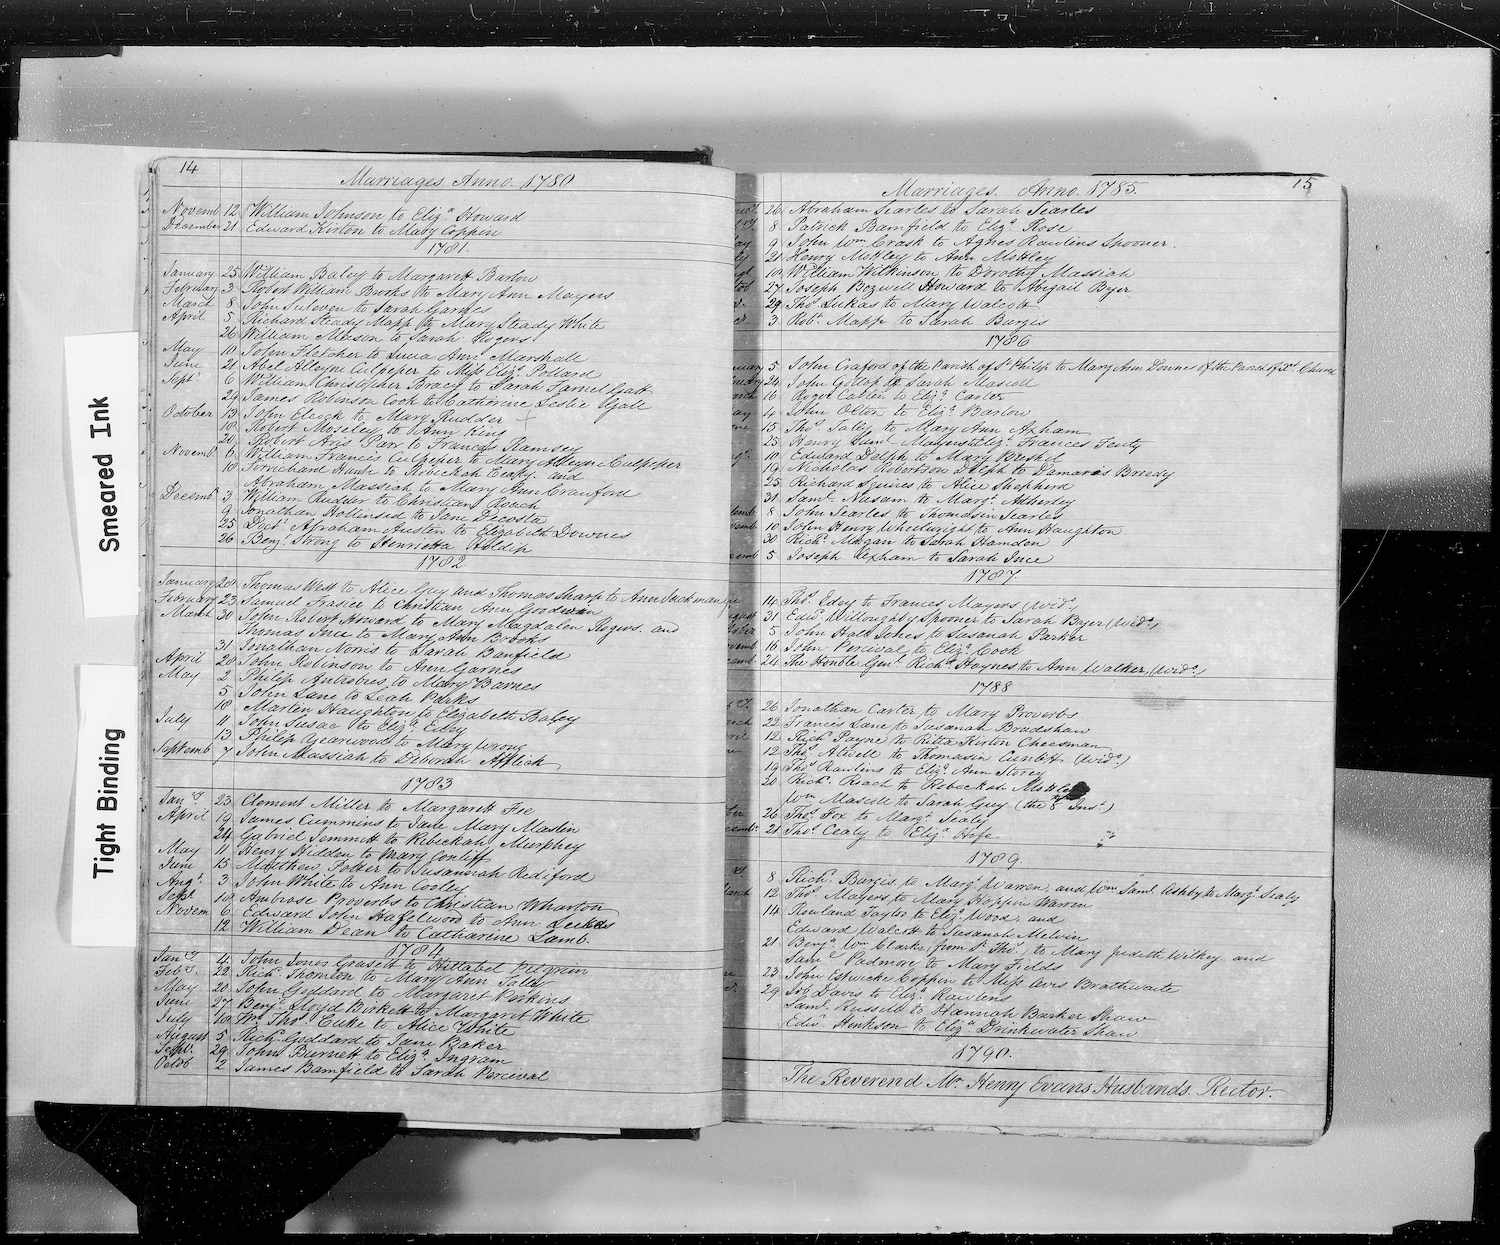 Smeared Ink
Tight Binding
14
Marriages Anno 1780
Novemb 12 William Johnson to Eliz.a Howard
December 21 Edward Kirton to Mary Coppin
1781.
January 25 William Baley to Margarett Barton
February 3 Robert William Brooks to Mary Ann Mayers
March 8 John to Sarah Garnes
April 5 Richard Steady Mapp to Mary Steady White
26 William Mason to Sarah Rogers
May 10 John Fletcher to Ann Marshall
June 21 Abel Alleyne Culpeper to Miss Eliz.a Pollard
Sept.r 6 William Christopher Bracy to Sarah Gall
29 James Robinson Cook to Catherine Leslie Gall
October 13 John to Mary Rudder
18 Robert Moseley to Ann King
20 Robert Parr to Frances Ramsey
Novemb.r 6 William Francis Culpeper to Mary Alleyne Culpeper
18 to Rebeckah and
Abraham Massiah to Mary Ann Crawford
Decemb.r 3 William Rudder to Christian Roach
9 Jonathan Hollinsed to Jane Decosta
25 Doct.r Abraham Austen to Elizabeth Downes
26 Benj. Strong to Henrietta Holdip
1782
January 20 Thomas West to Alice Guy and Thomas Sharp to Ann Jackman
February 23 Samuel Frasier to Christian Ann Goodwin
March 30 John Robert Howard to Mary Magdalen Rogers. and
Thomas Ince to Mary Ann Brooks
31 Jonathan Norris to Sarah Banfield
April 20 John Robinson to Ann Garnes
May 2 Philip to Mary Barnes
5 John Lane to Leah Parks
18 Marten Haughton to Elizabeth Baley
July 11 John to Eliz.a Edey
13 Philip Yearwood to Mary Wrong
Septemb 7 John Massiah to Deborah Afflick
1783
Jan.ry 23 Clement Miller to Margarett Fee
April 19 James Cummins to Jane Mary Maslin
24 Gabriel Jemmett to Rebeckah Murphey
May 11 Henry Hidden to Mary Conliff
June 15 Matthew Potter to Susannah Rediford
Aug.t 3 John White to Ann Cooley
Sept.r 18 Ambrose Proverbs to Christian Wharton
Novem 6 Edward John Hazelwood to Ann Leekas
12 William Dean to Catharine Lamb.
1784
Jan.ry 4 John Jones Grasett to Hillabel Pilgrim
Feb.ry 22 Rich.d Thomson to Mary Ann Jolly
May 20 John Goddard to Margaret Perkins
June 27 Benj.a Lloyd Birkett to Margaret White
July 10 Wm Tho.s Cuke to Alice White
August 5 Rich. Goddard to Jane Baker
Sept.r 29 John Burnett to Eliz.a Ingram
Octob 2 James Bamfield to Sarah Perceval
15
Marriages. Anno. 1785.
26 Abraham Searles to Sarah Searles
8 Patrick Bamfield to Eliz.a Rose
9 John Wm Crask to Agnes Rawlins Spooner.
21 Henry Mottley to Ann Mottley
10 William Wilkinson to Dorothy Massiah
27 Joseph Bozwell Howard to Abigail Byer
29 Tho.s Lukas to Mary Walcott
3 Rob.t Mapp to Sarah Burgis
1786
5 John Craford of the Parish of S.t Philip to Mary Ann Downes of the Parish of X.t Church
24 John Gollop to Sarah Mascoll
16 Roger Carter to Eliz.a Carter
4 John Olton to Eliz.a Barlow
15 Tho.s Jolly to Mary Ann Axham
25 Henry Sam.l Mayers to Eliz. Frances Fenty
10 Edward Delph to Mary Bushel
19 Nicholas Robertson Delph to Damaris Bready
25 Richard Squires to Alice Shepherd
31 Sam.l Nusam to Marg.t Adherley
8 John Searles to Thomasin Searles
10 John Henry Wheelwright to Ann Haughton
30 Rich.d Megan to Sarah Hamden
5 Joseph Uxham to Sarah Ince
1787
14 Tho.s Edey to Frances Mayers (Wid.o)
31 Edw.d Willoughby Spooner to Sarah Byer (Wid.o)
5 John Hall Johes to Susanah Parker
16 John Percival to Eliz.a Cook
24 The Honble Gen.l Rich.d Haynes to Ann Walker (Wid.o)
1788
26 Jonathan Carter to Mary Proverbs
22 Francis Lane to Susanah Bradshaw
12 Rich.d Payne to Ritta Kirton Cheesman
12 Tho.s Atwell to Thomasin (Wid.o)
19 Tho.s Rawlins to Eliz.a Ann Storey
20 Rich.d Roach to Rebeckah
Wm Mascoll to Sarah Guy (the 8 Ins.t)
26 Tho.s Fox to Marg.t Sealy
21 Tho.s Cealy to Eliz.a Hope
1789
8 Rich.d Burgis to Marg.t Warren, and Wm Saml Ashby to Marg.t Sealy
12 Tho.s Mayers to Mary Hoppin Warren
14 Rowland Taylor to Eliz.a Wood, and
Edward Walcott to Susanah Melvin
21 Benj.a Wm Clarke (from S.t Tho.s) to Mary Judith Wilkey and
Sam.l Padmore to Mary Fields
23 John Estwicke Coppin to Miss Avis Brathwaite
29 Job Davis to Eliz.a Rawlens
Sam.l Russell to Hannah Barker Shaw
Edw.d Henkson to Eliz.a Drinkwater Shaw
1790.
The Reverend Mr. Henry Evans Husbands. Rector.